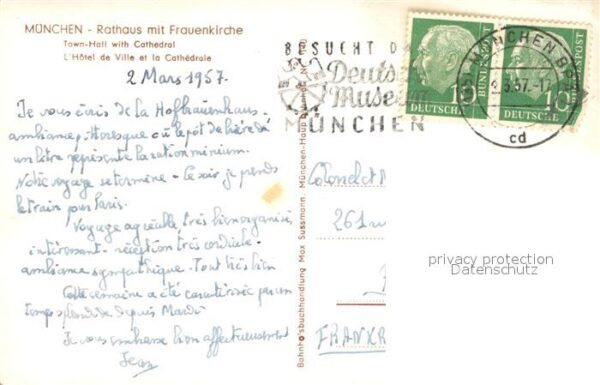 MÜNCHEN - Rathaus mit Frauenkirche
Town-Hall with Cathedral
L'Hôtel de Ville et la Cathédrale
2 Mars 1957.
Je vous écris de la Hofbrauenhaus.
ambiance pittoresque où le pot de bière d'
un litre représente la ration minium.
Notre voyage se termine - Ce soir je prends
le train pour Paris.
Voyage agréable, très bien organisé,
intéressant - réception très cordiale -
ambiance sympathique. Tout très bien
Cette semaine a été caractérisée par un
temps splendide depuis Mardi
Je vous embrasse bien affectueusement
Jean
Bahnhofsbuchhandlung Max Sussmann München-Hauptbahnhof
BESUCHT D
Deutsc
Museu
MÜNCHEN
10
DEUTSCHE
BUNDESPOST
10
DEUTSCHE
BUNDESPOST
MÜNCHEN
.3.57.-1
cd
Colonel et
261
FRANK
privacy protection
Datenschutz